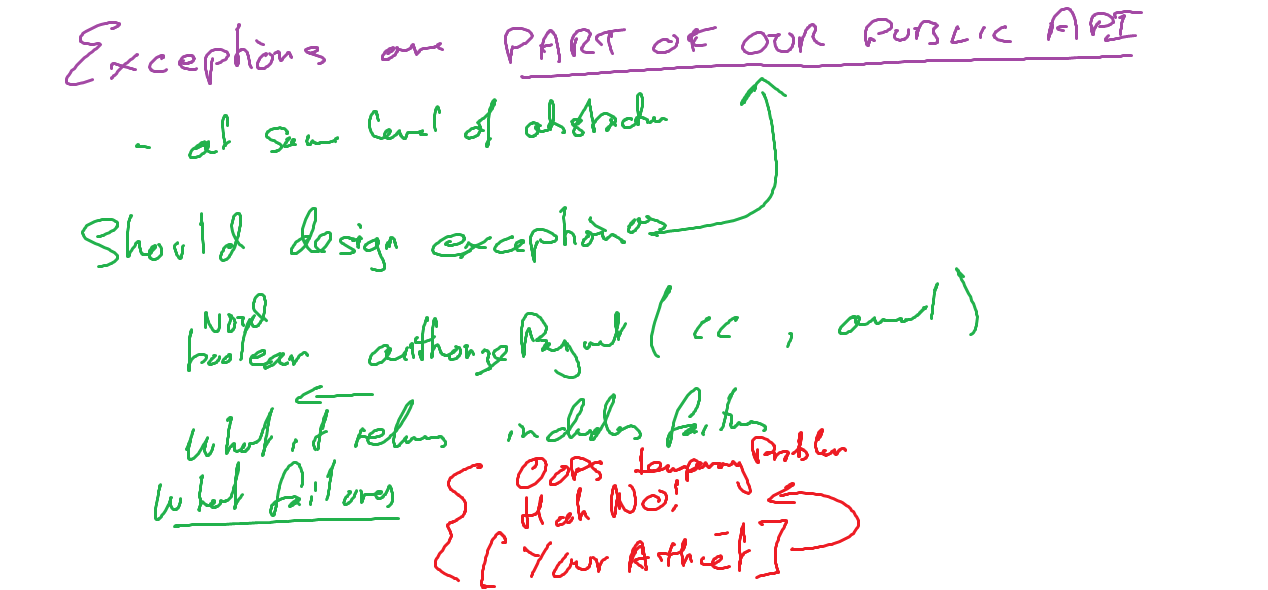 Exceptions are PART OF OUR PUBLIC API
- at same level of abstraction
Should design exceptions
void
boolean authorizePayment ( cc , amount )
What it returns includes failures
What failures
OOPS temporary Problem
Hah NO!
[ Your A thief ]